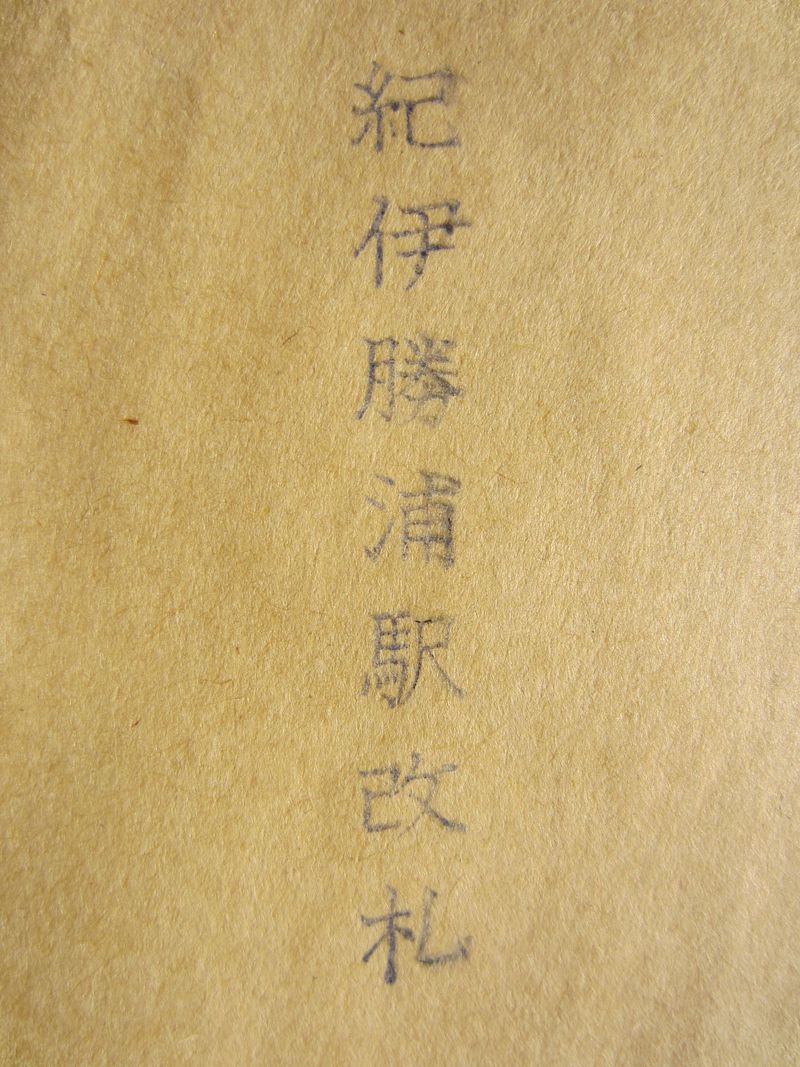 紀伊勝浦駅改札